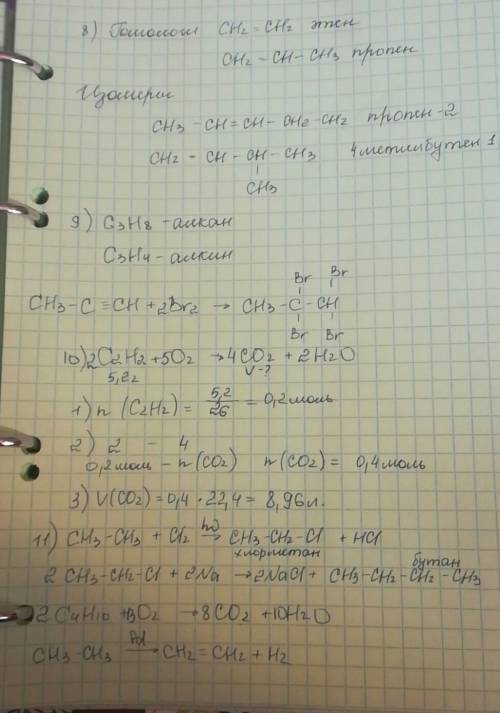 8) Гомологи CH₂ = CH₂ этен
CH₂ – CH – CH₃ пропен
Изомеры
CH₃ – CH = CH – CH₂ – CH₂ пропен-2
CH₂ – CH – CH – CH₃ 4 метилбутен 1
CH₃
9) C₃H₈ – алкан
C₃H₄ – алкин
Br Br
CH₃ – C ≡ CH + 2Br₂ → CH₃ – C – CH
Br Br
10) 2C₂H₂ + 5O₂ → 4CO₂ + 2H₂O
5,2г V – ?
1) n (C₂H₂) = 5,2/26 = 0,2 моль
2) 2 – 4
0,2 моль – n (CO₂) n (CO₂) = 0,4 моль
3) V(CO₂) = 0,4 · 22,4 = 8,96 л.
11) CH₃ – CH₃ + Cl₂ →hν CH₃ – CH₂ – Cl + HCl
хлорметан
бутан
2 CH₃ – CH₂ – Cl + 2Na → 2NaCl + CH₃ – CH₂ – CH₂ – CH₃
2C₄H₁₀ + 13O₂ → 8CO₂ + 10H₂O
CH₃ – CH₃ → CH₂ = CH₂ + H₂